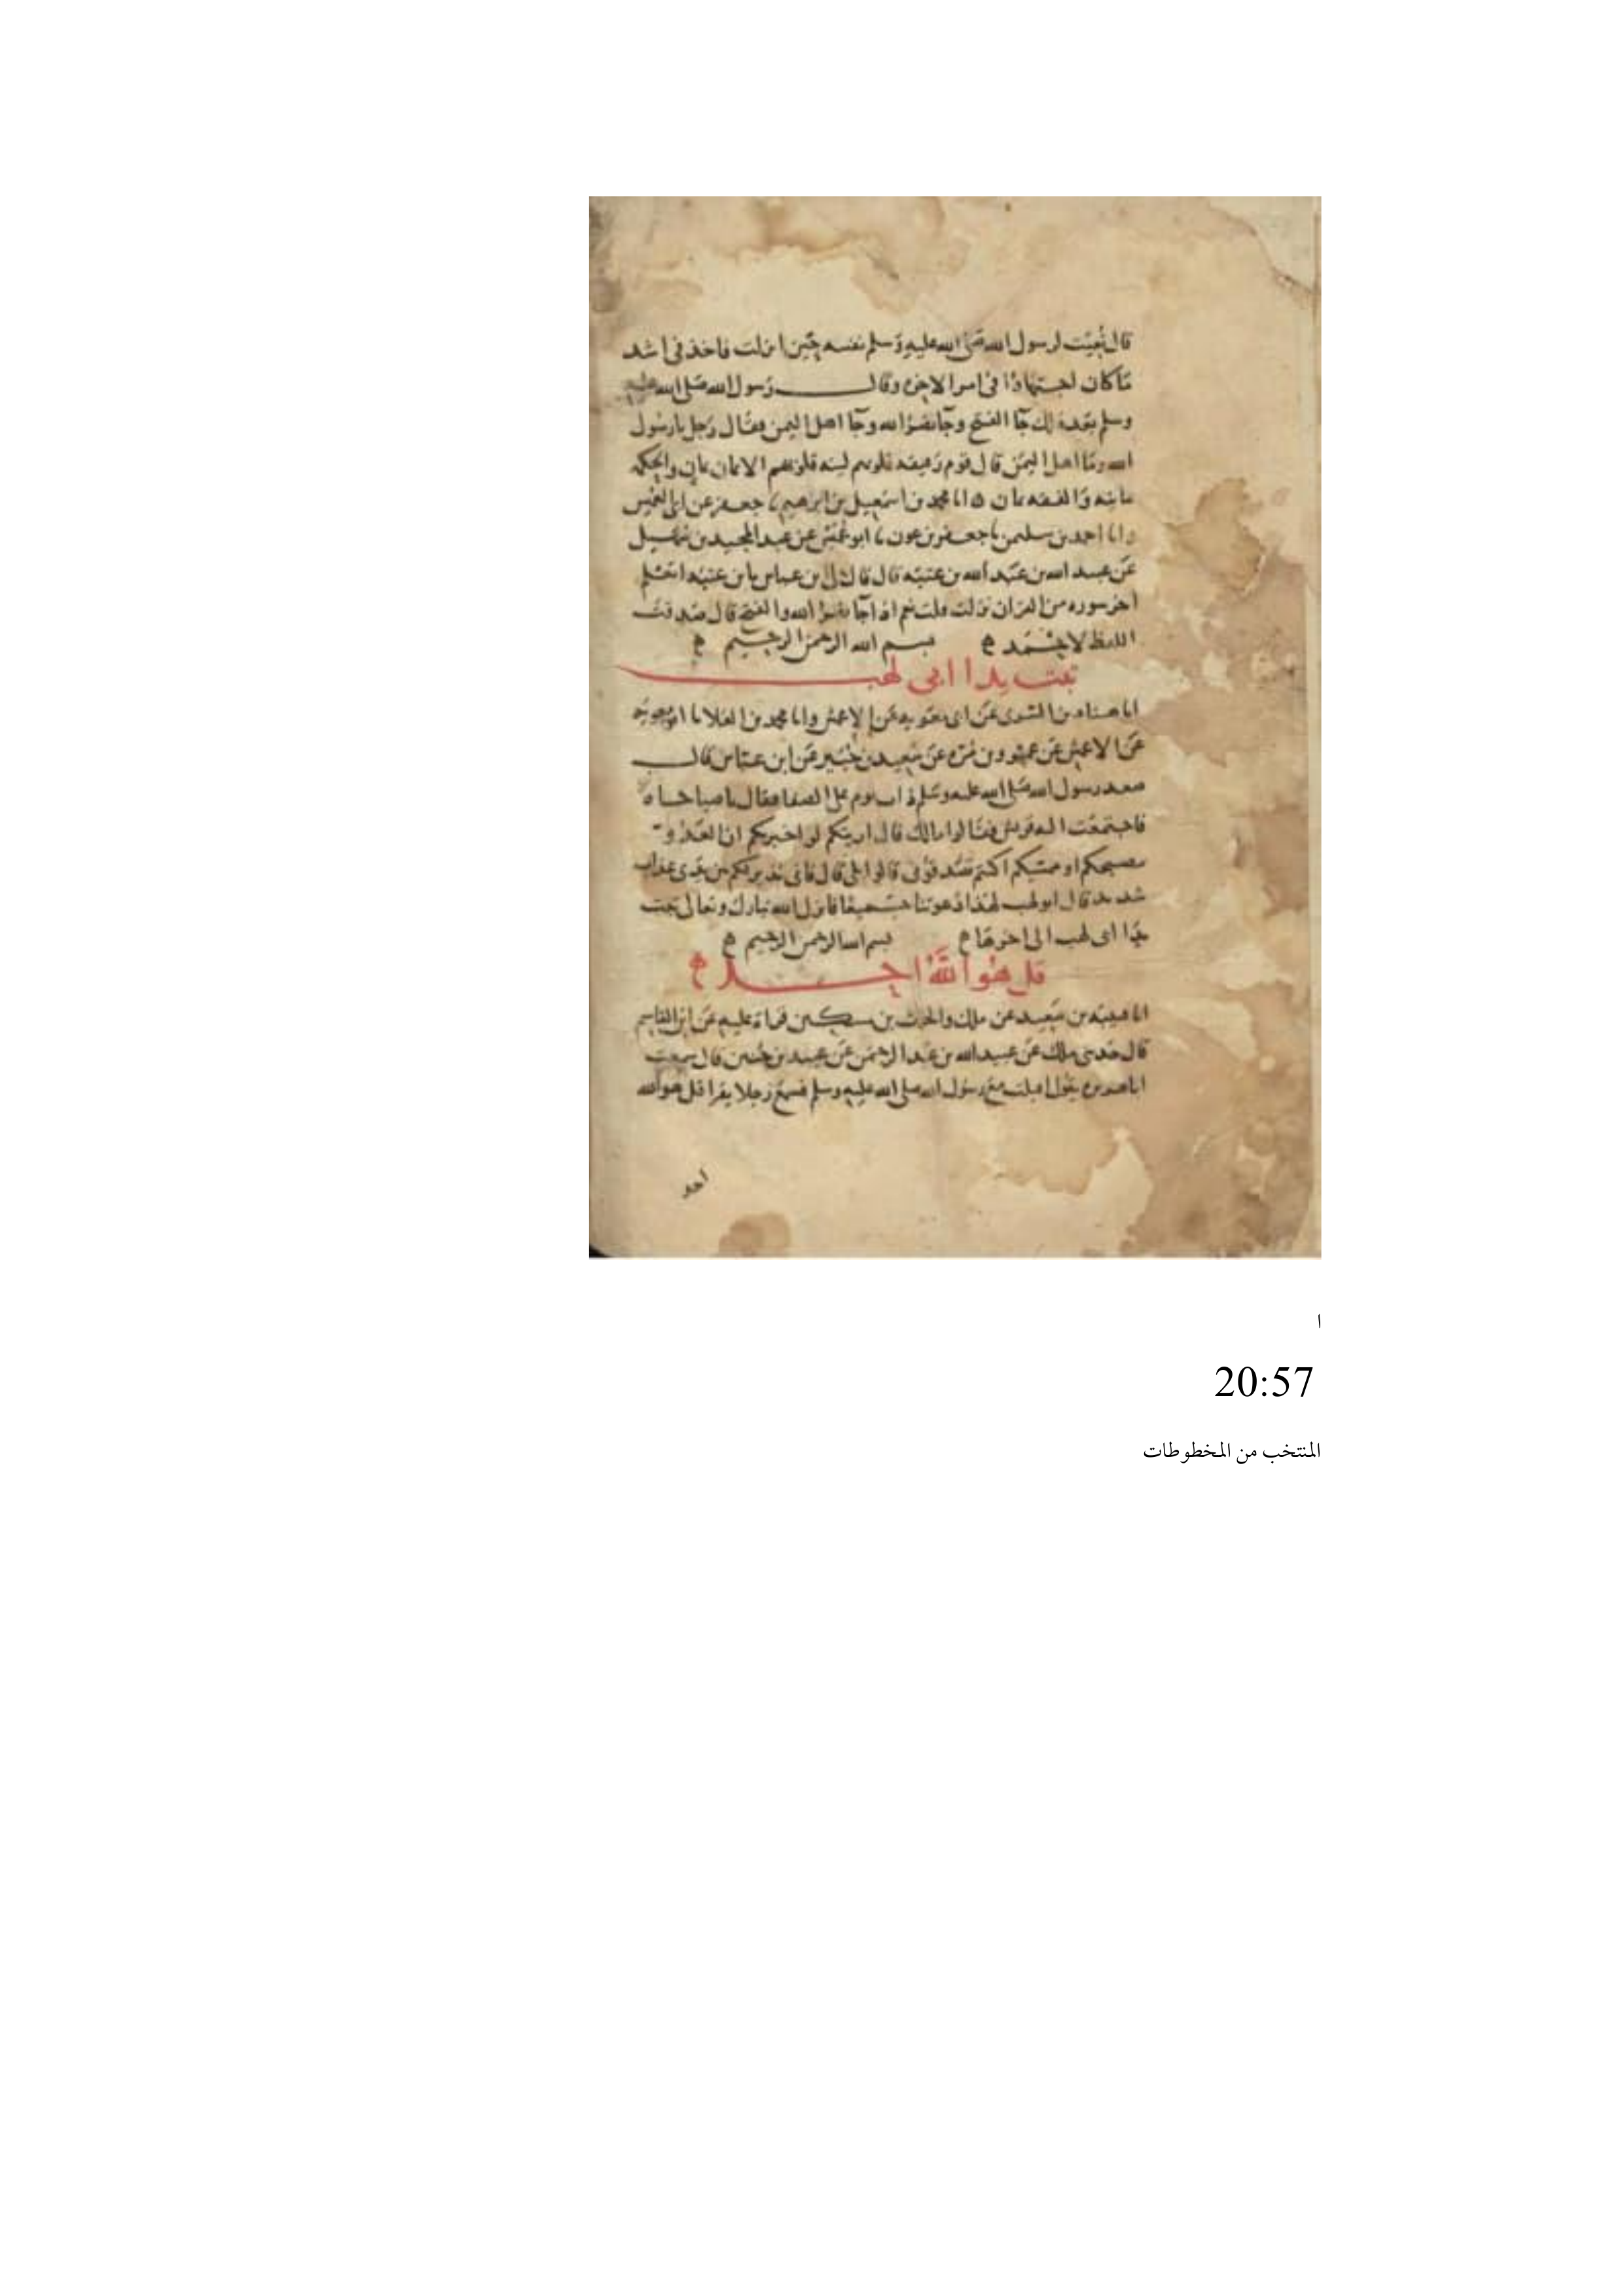 قال نعيت لرسول الله صلى الله عليه وسلم نفسه حين انزلت فاخذ في اشد
ما كان اجتهادا في امر الاخره وقال رسول الله صلى الله عليه
وسلم بعد ذلك جا الفتح وجا نصر الله وجا اهل اليمن فقال رجل يا رسول
الله وما اهل اليمن قال قوم رقيقه قلوبهم لينه قلوبهم الايمان يمان والحكمه
يمانيه والفقه يمان ه انا محمد بن اسمعيل بن ابرهيم نا جعفر عن ابي العميس
وانا احمد بن سليمن نا جعفر بن عون نا ابو عميس عن عبد المجيد بن سهيل
عن عبيد الله بن عبد الله بن عتبه قال قال لي ابن عباس يا بن عتبه اتعلم
اخر سوره من القران نزلت قلت نعم اذا جا نصر الله والفتح قال صدقت
اللفظ لاحمد بسم الله الرحمن الرحيم
تبت يدا ابي لهب
انا هناد بن السري عن ابي معويه عن الاعمش وانا محمد بن العلا نا ابو معويه
عن الاعمش عن عمرو بن مره عن سعيد بن جبير عن ابن عباس قال
صعد رسول الله صلى الله عليه وسلم ذات يوم على الصفا فقال يا صباحاه
فاجتمعت اليه قريش فقالوا مالك قال ارايتكم لو اخبرتكم ان العدو
مصبحكم او ممسيكم اكنتم تصدقوني قالوا بلى قال فاني نذير لكم بين يدي عذاب
شديد قال ابو لهب لهذا دعوتنا جميعا فانزل الله تبارك وتعالى تبت
يدا ابي لهب الى اخرها بسم الله الرحمن الرحيم
قل هو الله احد
انا قتيبه بن سعيد عن ملك والحرث بن مسكين قراة عليه عن ابن القاسم
قال حدثني ملك عن عبيد الله بن عبد الرحمن عن عبيد بن حنين قال سمعت
ابا هريره يقول اقبلت مع رسول الله صلى الله عليه وسلم فسمع رجلا يقرا قل هو الله
احد
ا
20:57
المنتخب من المخطوطات